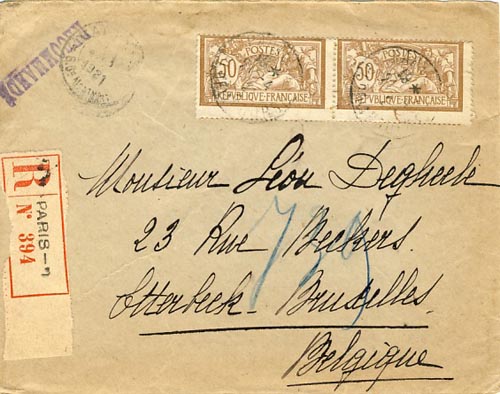 RECOMMANDÉ
1921
50 POSTES 50 POSTES
REPUBLIQUE FRANÇAISE REPUBLIQUE FRANÇAISE
R PARIS-7
N° 394
Monsieur Léon Degheele
23 Rue Beckers.
Etterbeek-Bruxelles.
Belgique